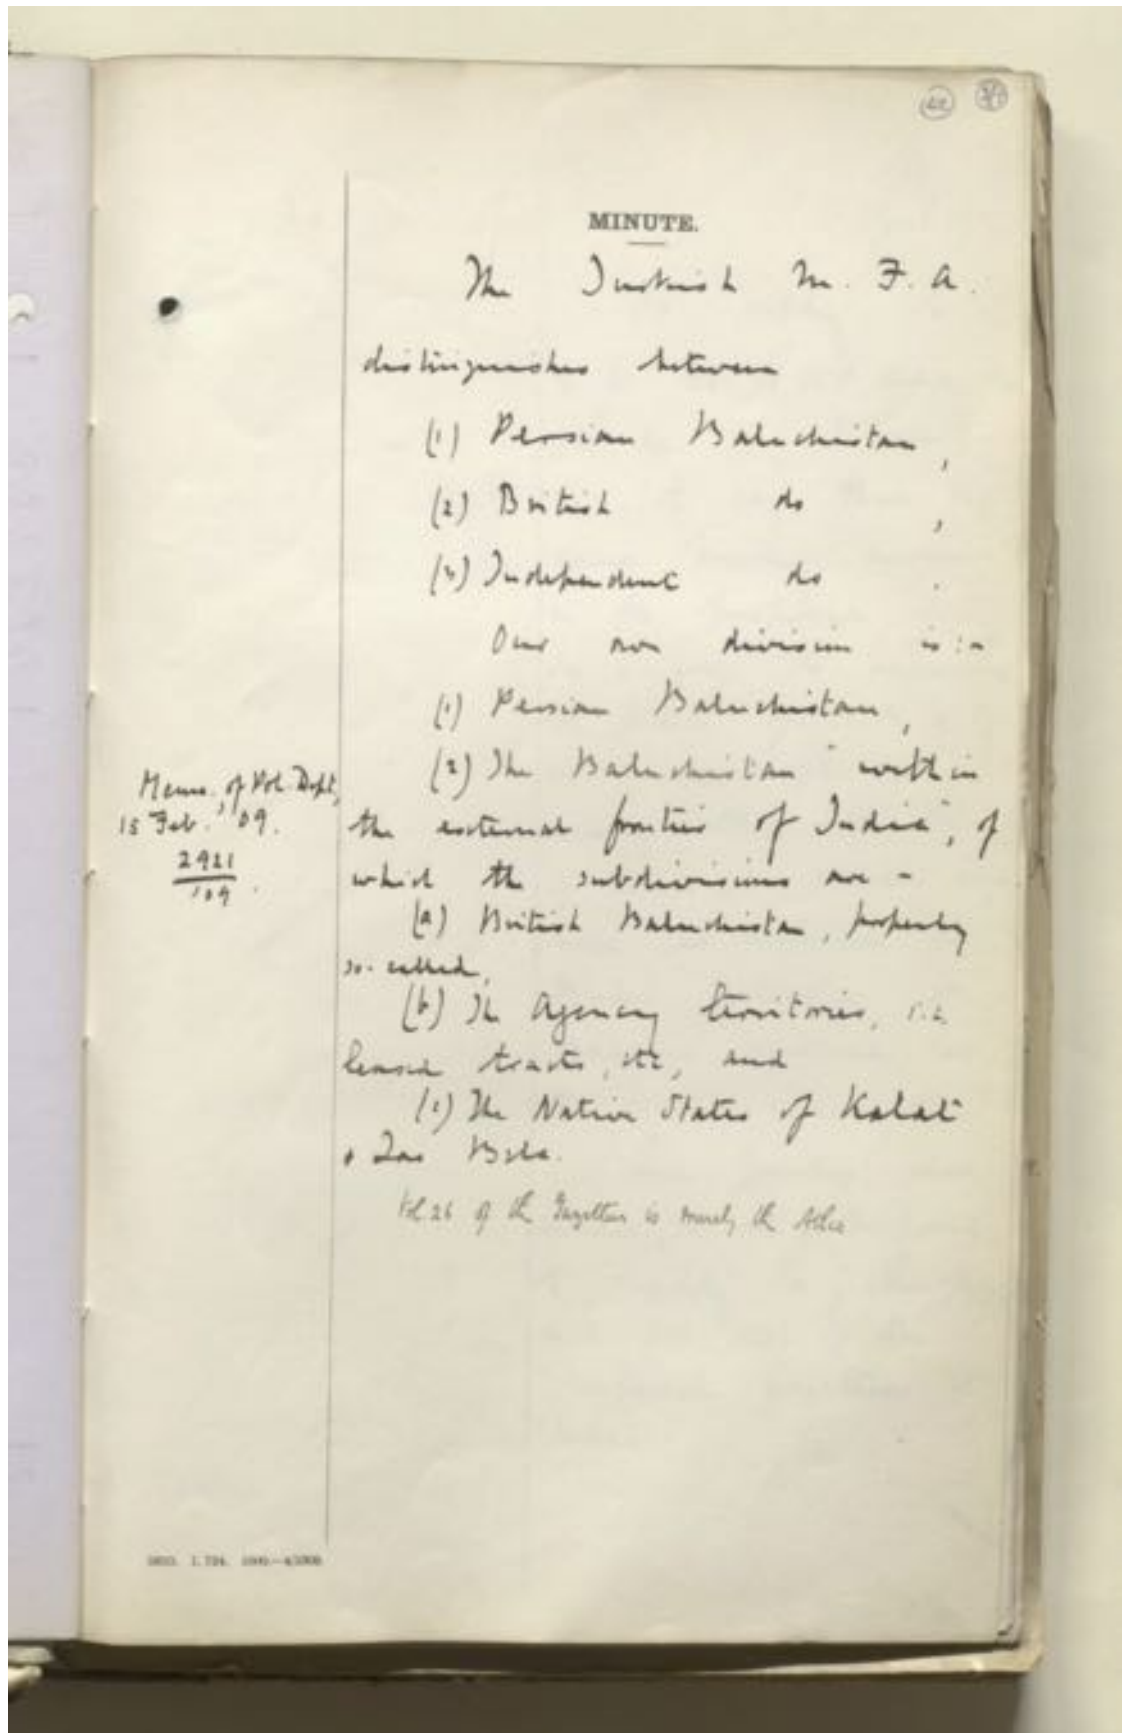 MINUTE.
The Turkish M. F. A.
distinguishes between
(1) Persian Baluchistan,
(2) British do,
(3) Independent do.
Our own division is:-
(1) Persian Baluchistan,
(2) The Baluchistan "within
the external frontier of India", of
which the subdivisions are -
(a) British Baluchistan, properly
so-called,
(b) The Agency territories, i.e.
leased tracts, etc, and
(c) The Native States of Kalat
& Las Bela.
Vol. 26 of the Gazetteer is merely the Atlas
Memo. of Pol. Dept,
15 Feb. '09.
2921
'09.